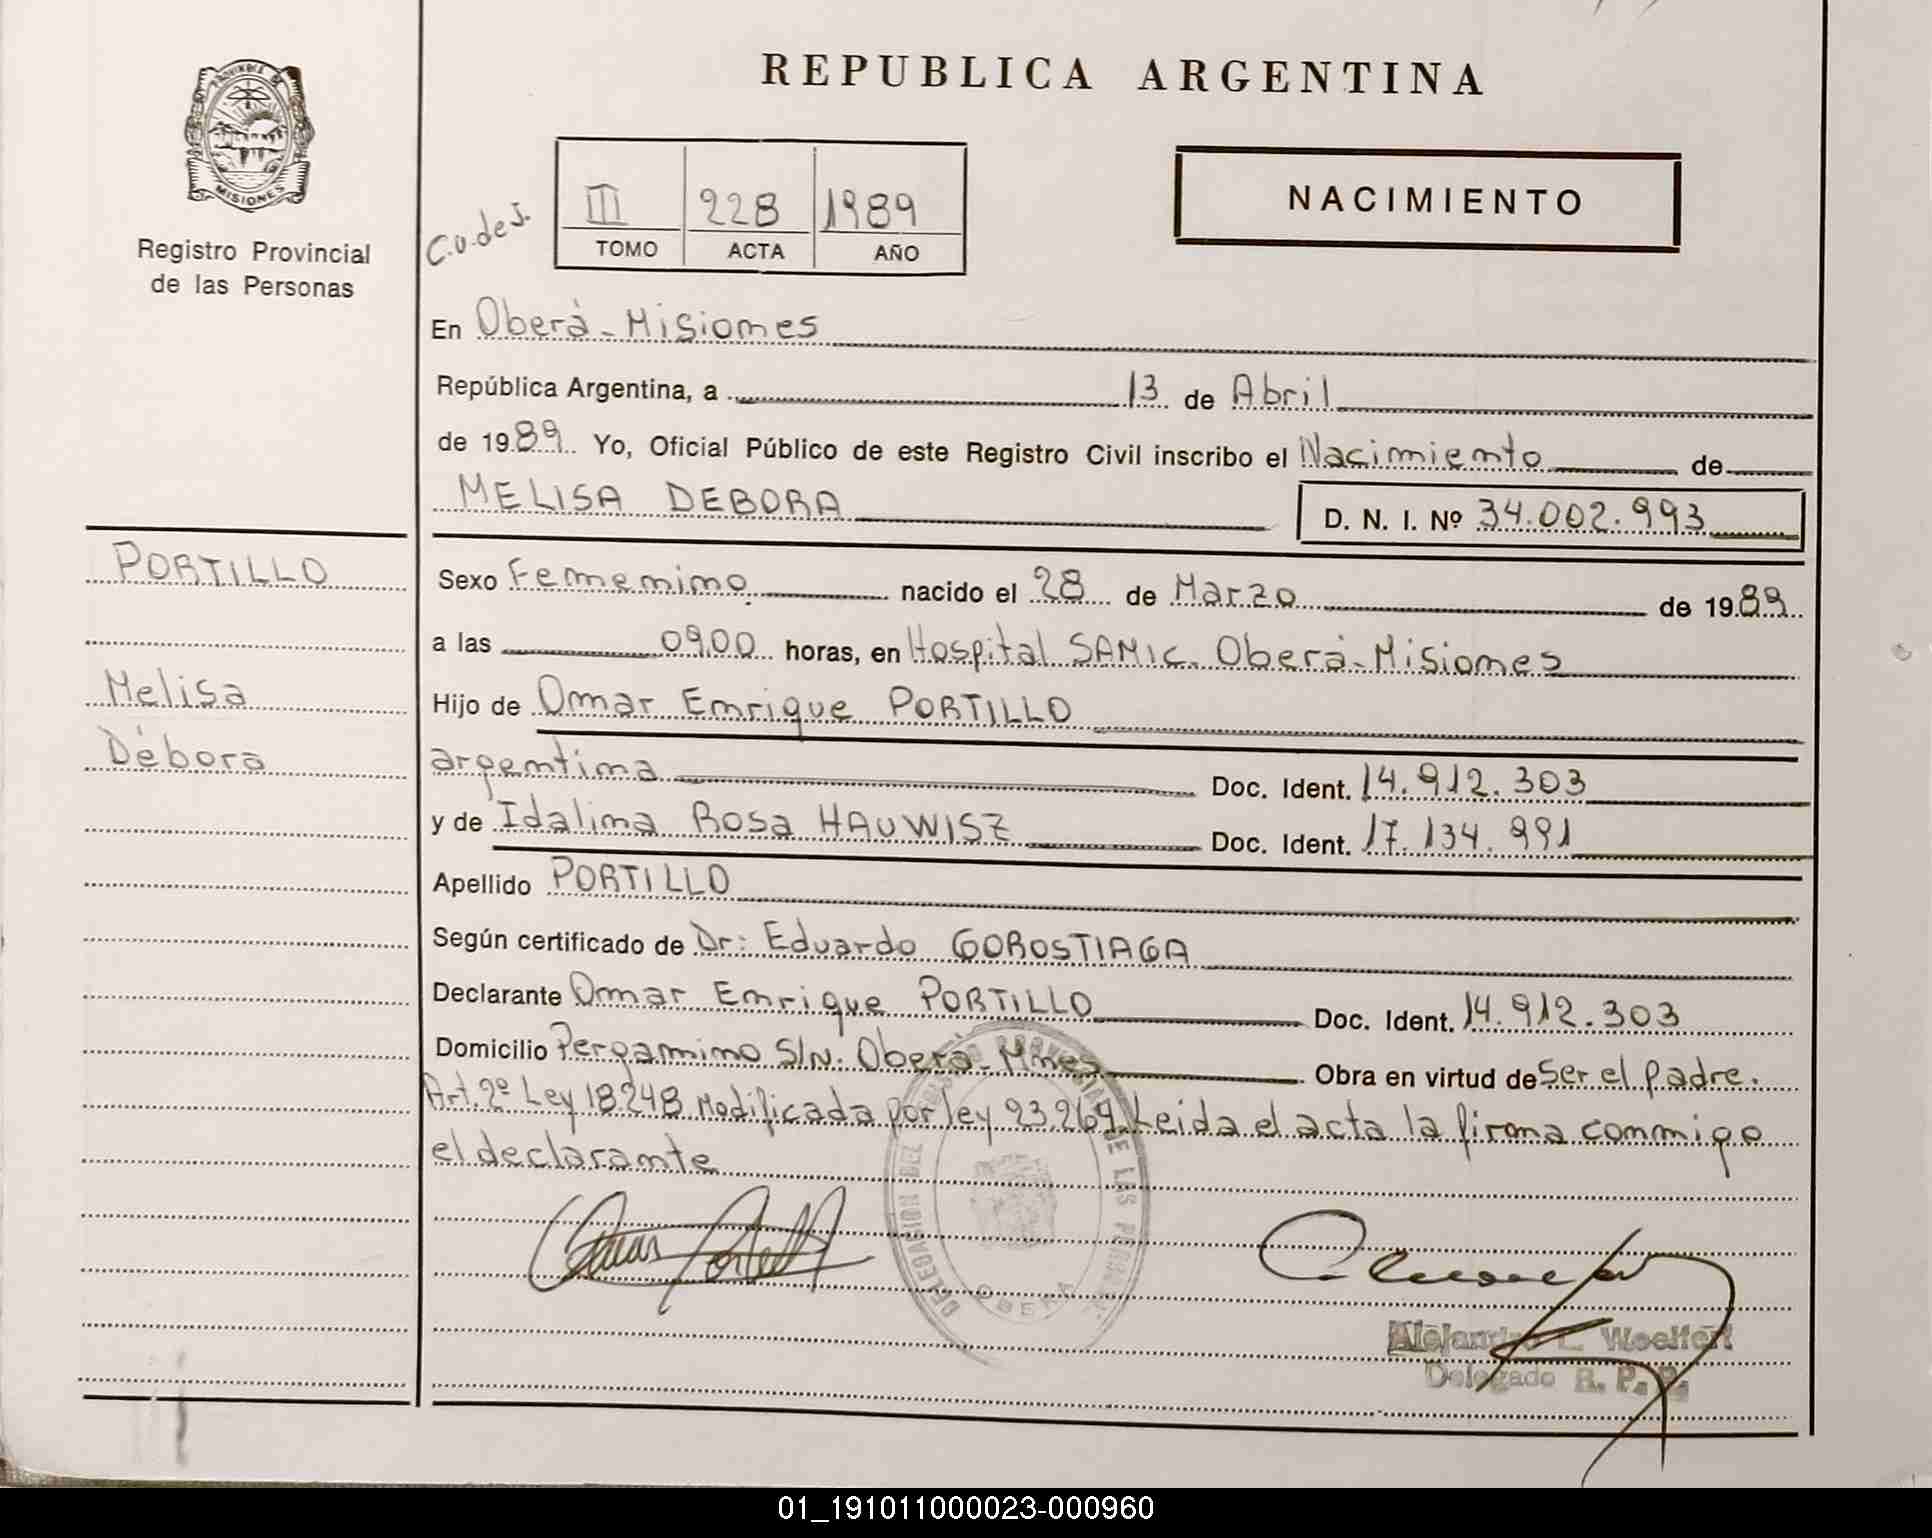 PROVINCIA DE
MISIONES
Registro Provincial
de las Personas
REPUBLICA ARGENTINA
C.U. de J.
III 228 1989
TOMO ACTA AÑO
NACIMIENTO
En Oberá - Misiones
República Argentina, a 13 de Abril
de 1989. Yo, Oficial Público de este Registro Civil inscribo el Nacimiento de
MELISA DEBORA D. N. I. Nº 34.002.993
PORTILLO
Melisa
Débora
Sexo Femenino nacido el 28 de Marzo de 1989
a las 09,00 horas, en Hospital SAMIC. Oberá - Misiones
Hijo de Omar Enrique PORTILLO
argentina Doc. Ident. 14.912.303
y de Idalina Rosa HAUWISZ Doc. Ident. 17.134.991
Apellido PORTILLO
Según certificado de Dr: Eduardo GOROSTIAGA
Declarante Omar Enrique PORTILLO Doc. Ident. 14.912.303
Domicilio Pergamino S/N. Oberá - Mnes Obra en virtud de Ser el padre.
Art. 2º Ley 18248 Modificada por ley 23.264. Leida el acta la firma conmigo
el declarante
DELEGACION DEL REGISTRO PROVINCIAL DE LAS PERSONAS
OBERA
Alejandro L. Woelfert
Delegado R. P. P.
01_191011000023-000960